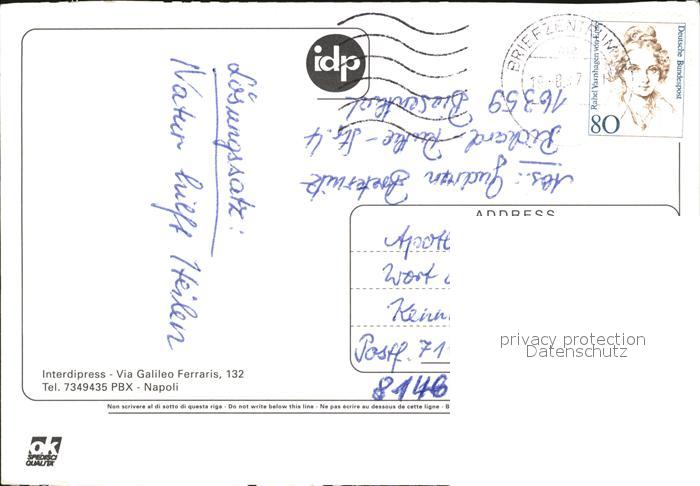 idp
BRIEFZENTRUM
Deutsche Bundespost
Rahel Varnhagen von Ense
80
Lösungssatz:
Natur hilft Heilen
Abs.: Gudrun
Richard - Str. 4
16359 Biesenthal
ADDRESS
Apoth
Wort
Kenn
Postf. 71
8146
privacy protection
Datenschutz
Interdipress - Via Galileo Ferraris, 132
Tel. 7349435 PBX - Napoli
Non scrivere al di sotto di questa riga - Do not write below this line - Ne pas écrire au dessous de cette ligne - B
ok
SPEDISCI
QUALITA'